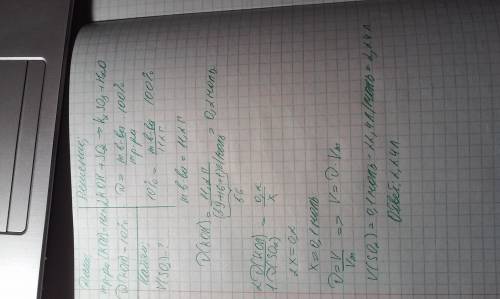 Дано:
m р-ра (KOH) = 112 г
ω(KOH) = 10%
Найти:
V(SO2) ?
Решение:
2KOH + SO2 → K2SO3 + H2O
ω = m в-ва / m р-ра 100%
10% = m в-ва / 112 г 100%
m в-ва = 11,2 г
ν(KOH) = 11,2 г / (39+16+1) г/моль = 0,2 моль
56
2 ν(KOH) / 1 ν(SO2) = 0,2 / x
2x = 0,2
x = 0,1 моль
ν = V / Vm => V = ν · Vm
V(SO2) = 0,1 моль · 22,4 л/моль = 2,24 л
Ответ: 2,24 л